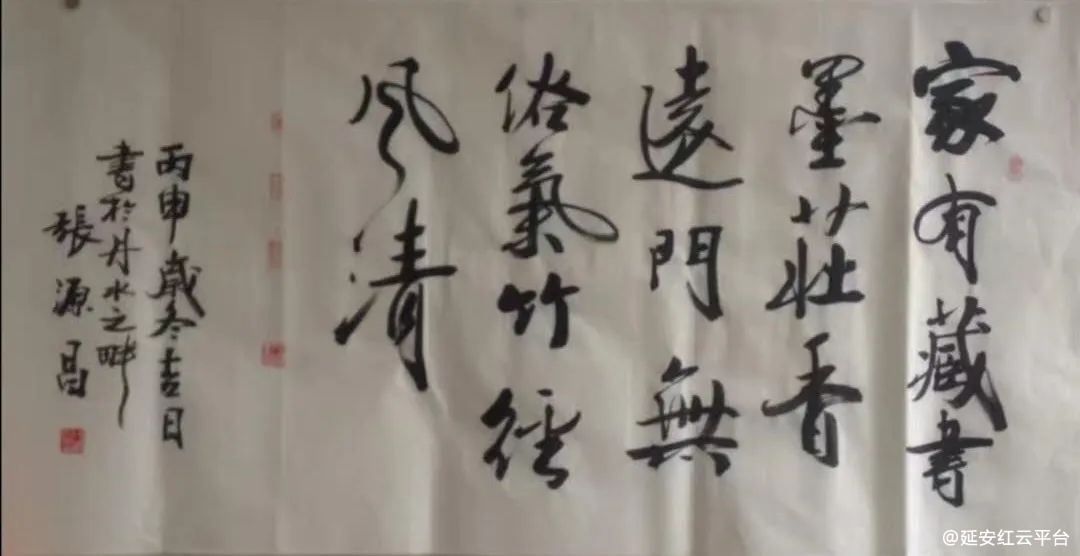 家有藏書
墨莊香
遠門無
俗氣竹徑
風清
丙申歲冬吉日
書於丹水之畔
張源昌
@延安红云平台